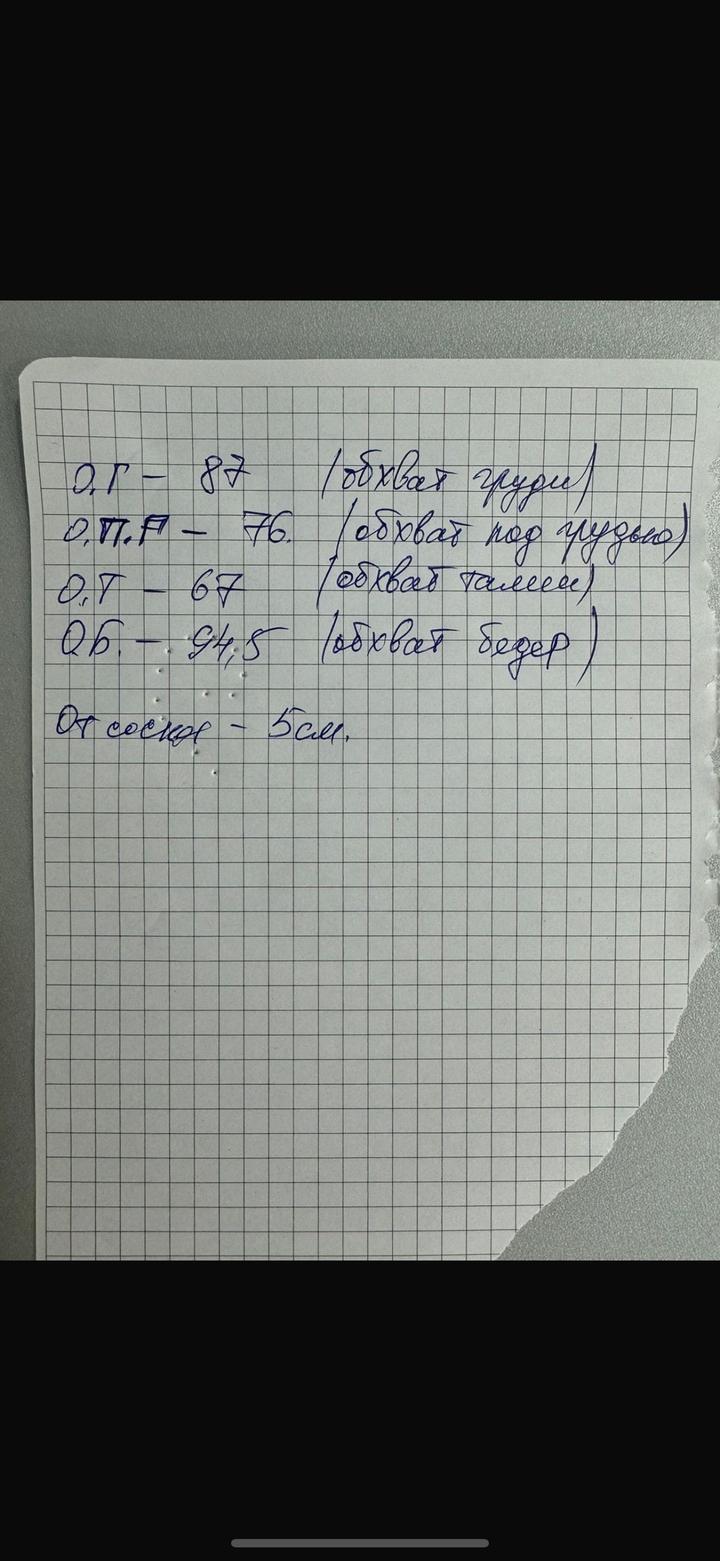 О.Г – 87 (обхват груди)
О.П.Г – 76. (обхват под грудью)
О.Т – 67 (обхват талии)
О.Б. – 94,5 (обхват бедер)
От соска – 5 см.